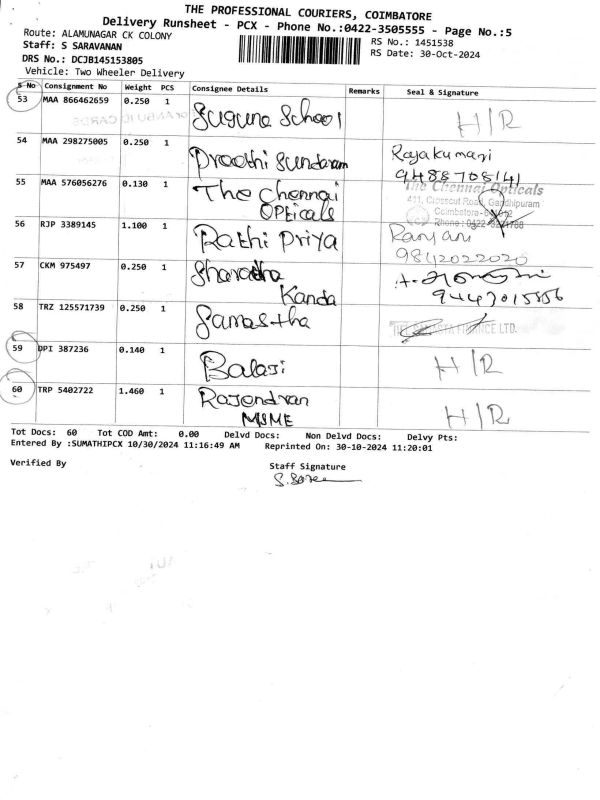 THE PROFESSIONAL COURIERS, COIMBATORE
Delivery Runsheet - PCX - Phone No.:0422-3505555 - Page No.:5
Route: ALAMUNAGAR CK COLONY
RS No.: 1451538
Staff: S SARAVANAN
RS Date: 30-Oct-2024
DRS No.: DCJB145153805
Vehicle: Two Wheeler Delivery
S No Consignment No Weight PCS Consignee Details Remarks Seal & Signature
53 MAA 866462659 0.250 1 Suguna School H/R
54 MAA 298275005 0.250 1 Preethi Sundaram Rajakumari
9488708141
55 MAA 576056276 0.130 1 The Chennai
Opticals
The Chennai Opticals
411, Crosscut Road, Gandhipuram
Coimbatore-
Phone : 0422-
56 RJP 3389145 1.100 1 Rathi Priya Ranjani
9842022020
57 CKM 975497 0.250 1 Sharadha
Kanda
9447015556
58 TRZ 125571739 0.250 1 Samastha
FINANCE LTD.
59 DPI 387236 0.140 1 Balaji H/R
60 TRP 5402722 1.460 1 Rajendran
MSME
H/R
Tot Docs: 60 Tot COD Amt: 0.00 Delvd Docs: Non Delvd Docs: Delvy Pts:
Entered By :SUMATHIPCX 10/30/2024 11:16:49 AM Reprinted On: 30-10-2024 11:20:01
Verified By
Staff Signature